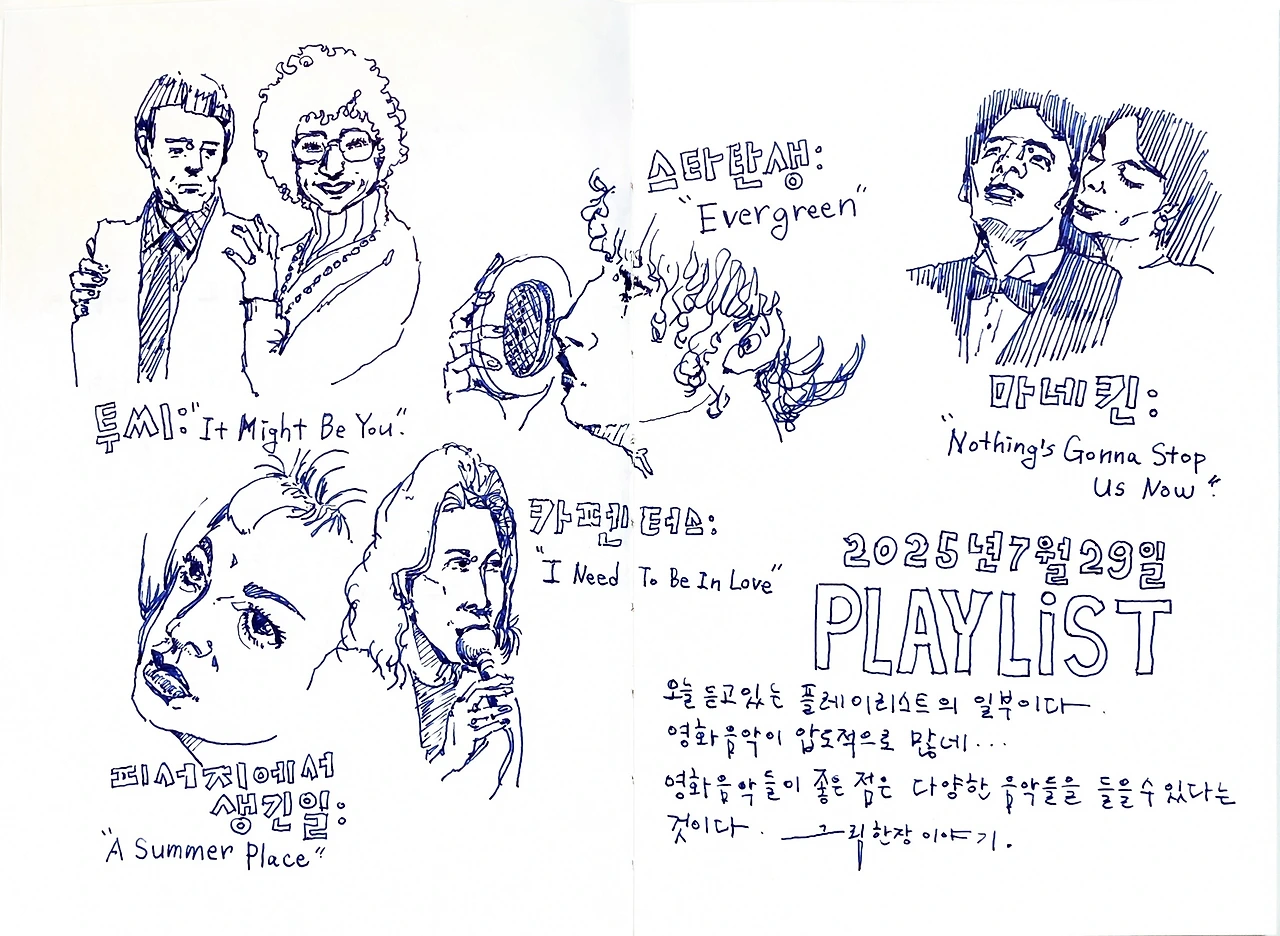 투씨: "It Might Be You".
스타탄생:
"Evergreen"
마네킨:
"Nothing's Gonna Stop
Us Now".
카펜터스:
"I Need To Be In Love"
피서지에서
생긴일:
"A Summer Place"
2025년7월29일
PLAYLiST
오늘 듣고있는 플레이리스트의 일부이다.
영화음악이 압도적으로 많네...
영화음악들이 좋은 점은 다양한 음악들을 들을수있다는
것이다. 그림한장이야기.